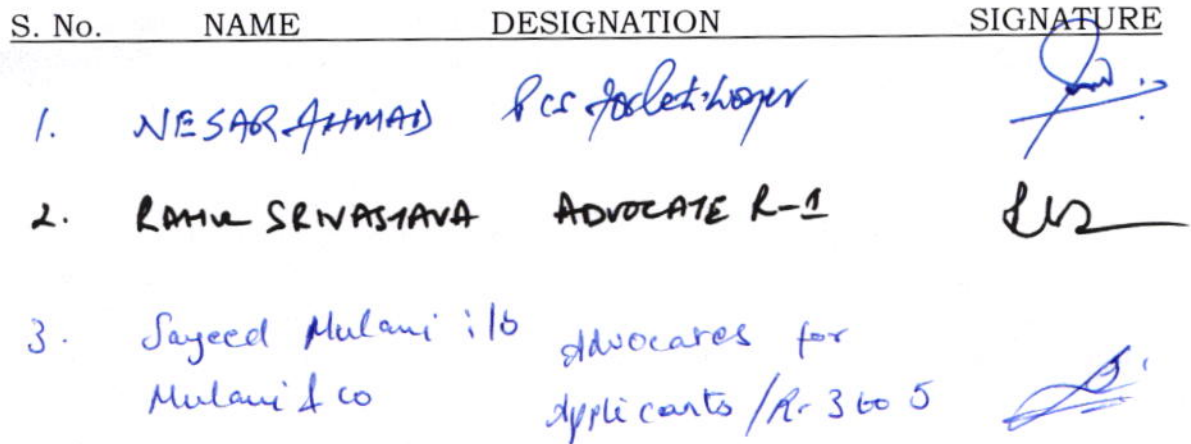 S. No. NAME DESIGNATION SIGNATURE
1. NESAR AHMAD PCS for
2. RAHUL SRIVASTAVA ADVOCATE R-1
3. Sayeed Mulani i/b Advocates for
Mulani & co Applicants/R-3 to 5